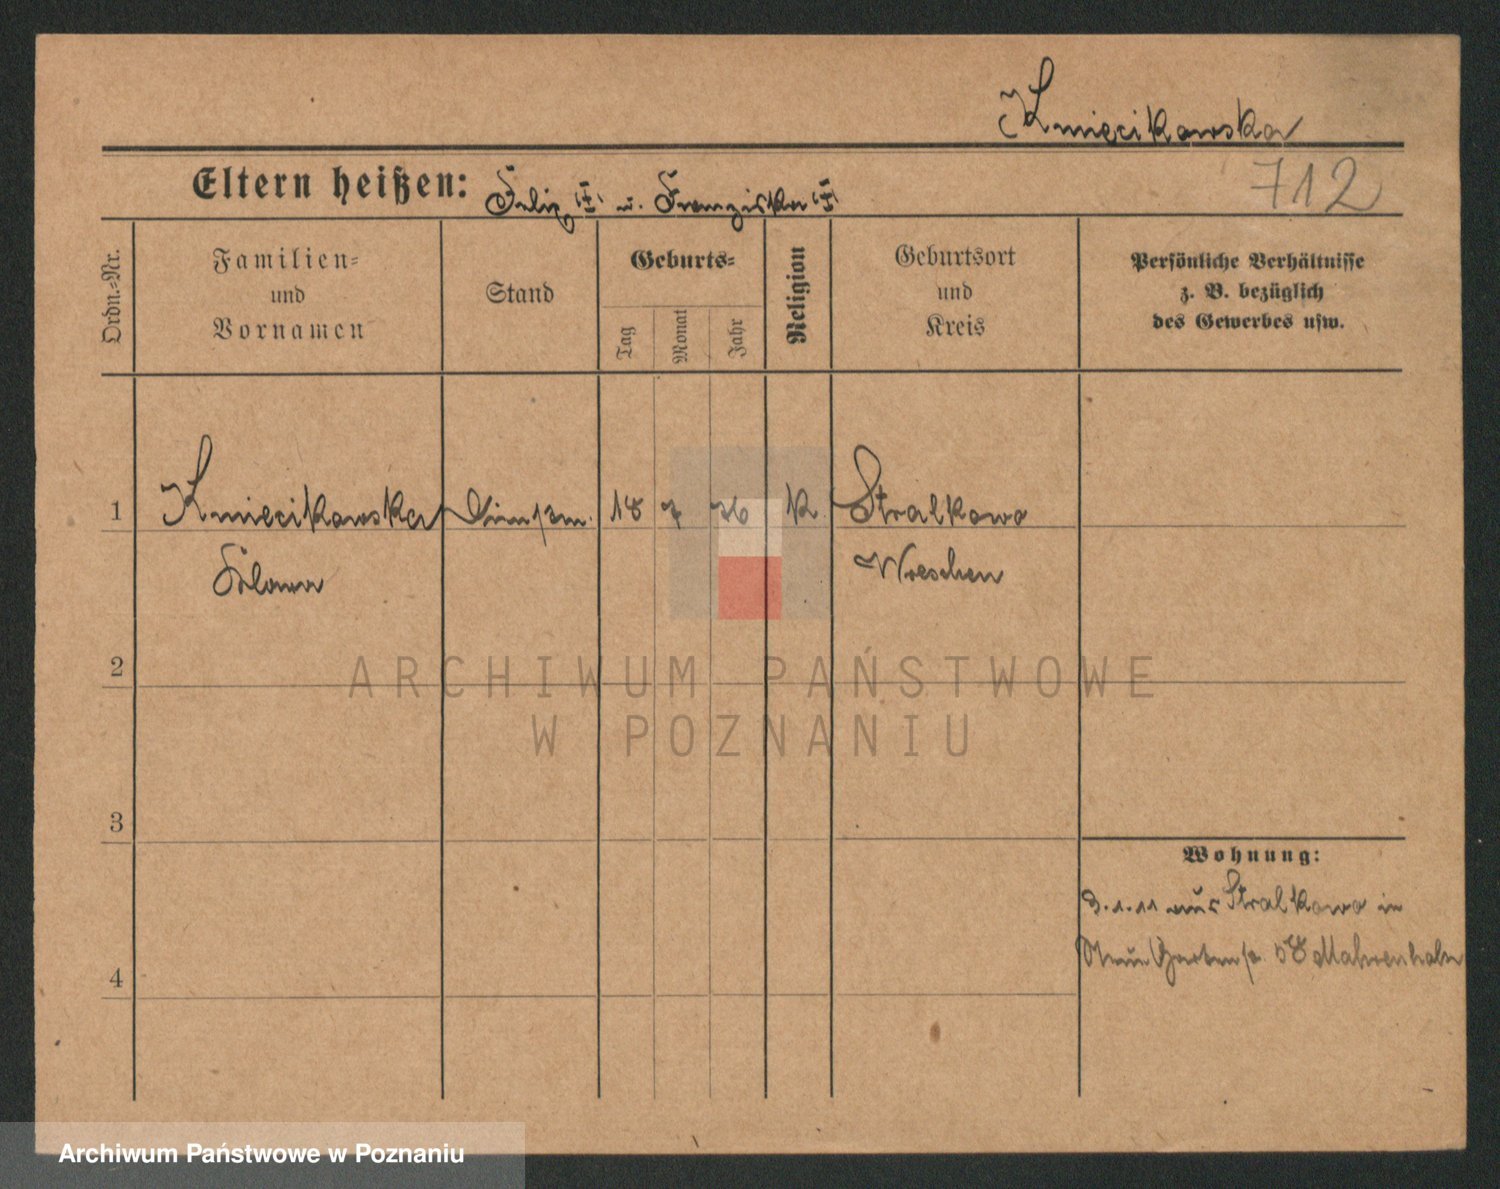 Kmięcikowska
712
Eltern heißen: Felix u. Franziska
Ordn.-Nr.
Familien-
und
Vornamen
Stand
Geburts-
Tag
Monat
Jahr
Religion
Geburtsort
und
Kreis
Persönliche Verhältnisse
z. B. bezüglich
des Gewerbes usw.
1
Kmięcikowska
18 7 76 k
Stralkowo
Wreschen
2
3
4
Wohnung:
3.1.11 aus Stralkowo in
ARCHIWUM PAŃSTWOWE
W POZNANIU
Archiwum Państwowe w Poznaniu